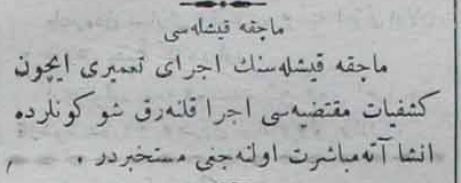 ماچقه قیشله‌سی
ماچقه قیشله‌سنك اجرای تعمیری ایچون
كشفیات مقتضیه‌سی اجرا قلنه‌رق شو كونلرده
انشا آته مباشرت اولنه‌جغی مستخبردر .